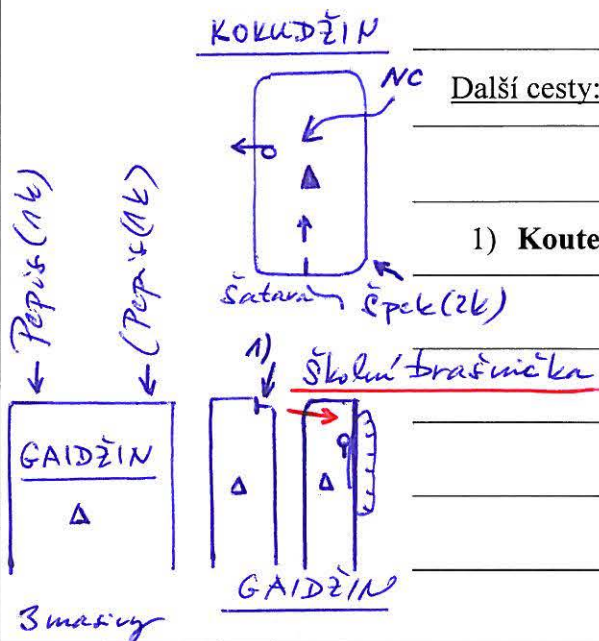 KOKUDŽIN
NC
Další cesty:
Popis (1k)
(Popis (1k)
1) Koute
Šatara
Špek (2k)
1)
Školní brašnička
GAIDŽIN
GAIDŽIN
3 masivy